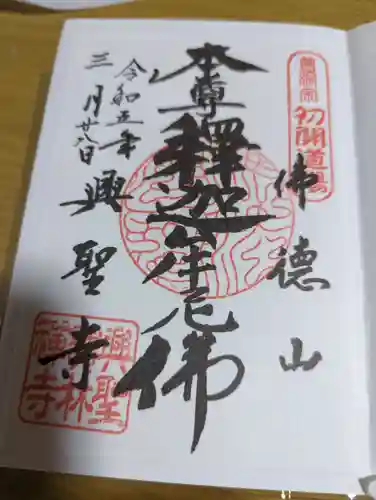 曹洞宗
初開道場
佛德山
本尊釋迦牟尼佛
令和五年
三月廿八日
興聖寺
興聖
禅林